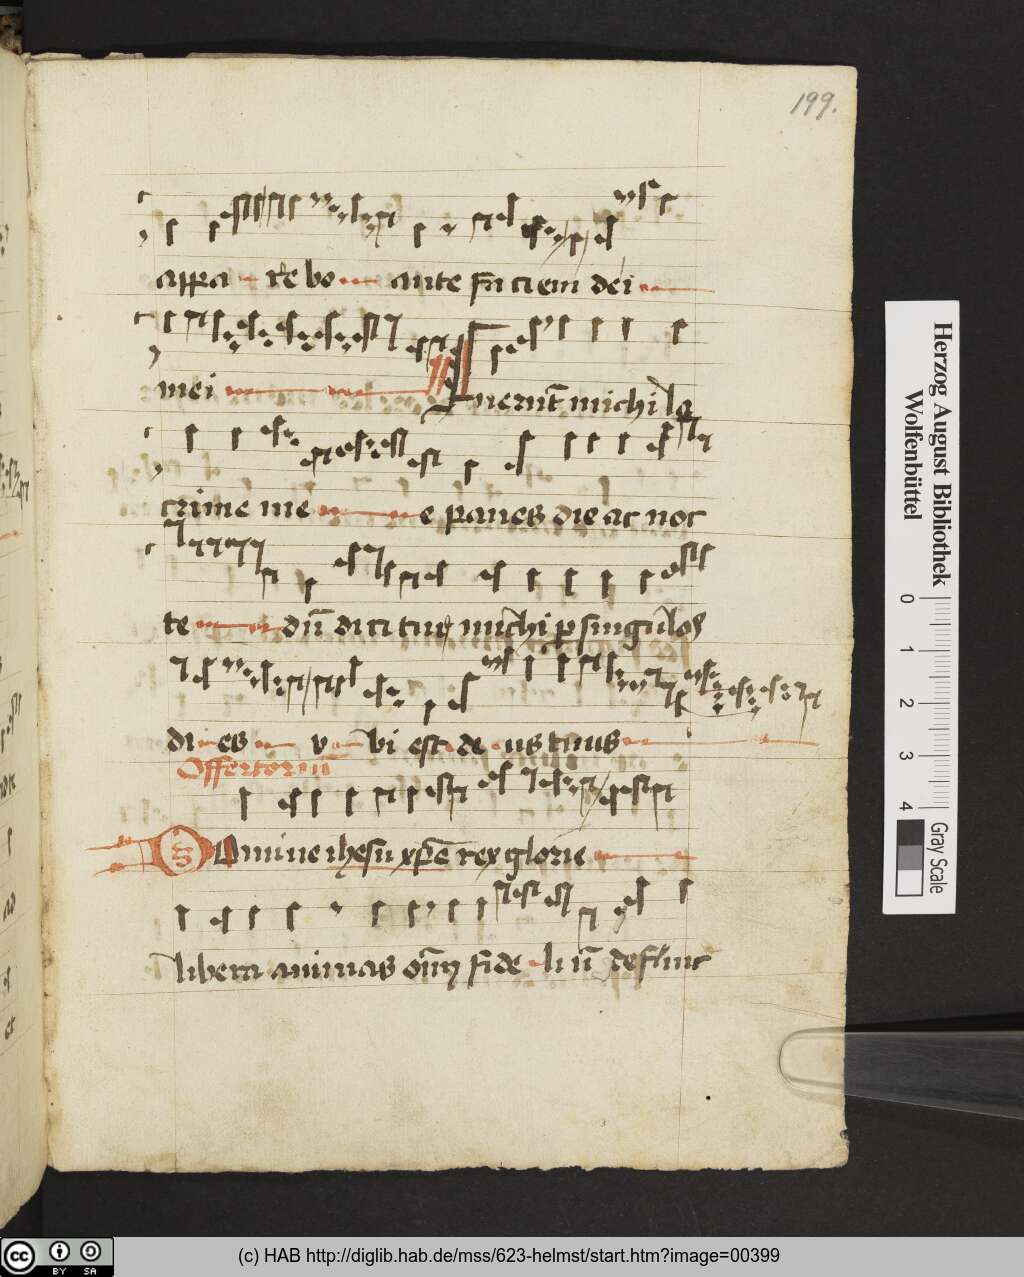 199.
appa re bo ante faciem dei
mei Fuerūt michi la
crime me e panes die ac noc
te dū dicitur michi per singulos
di es v bi est de us tuus
Offertoriū
Domine ihesu xp̄e rex glorie
libera animas om̄ fide liū defunc
Herzog August Bibliothek
Wolfenbüttel
0 1 2 3 4
Gray Scale
cc BY SA
(c) HAB http://diglib.hab.de/mss/623-helmst/start.htm?image=00399